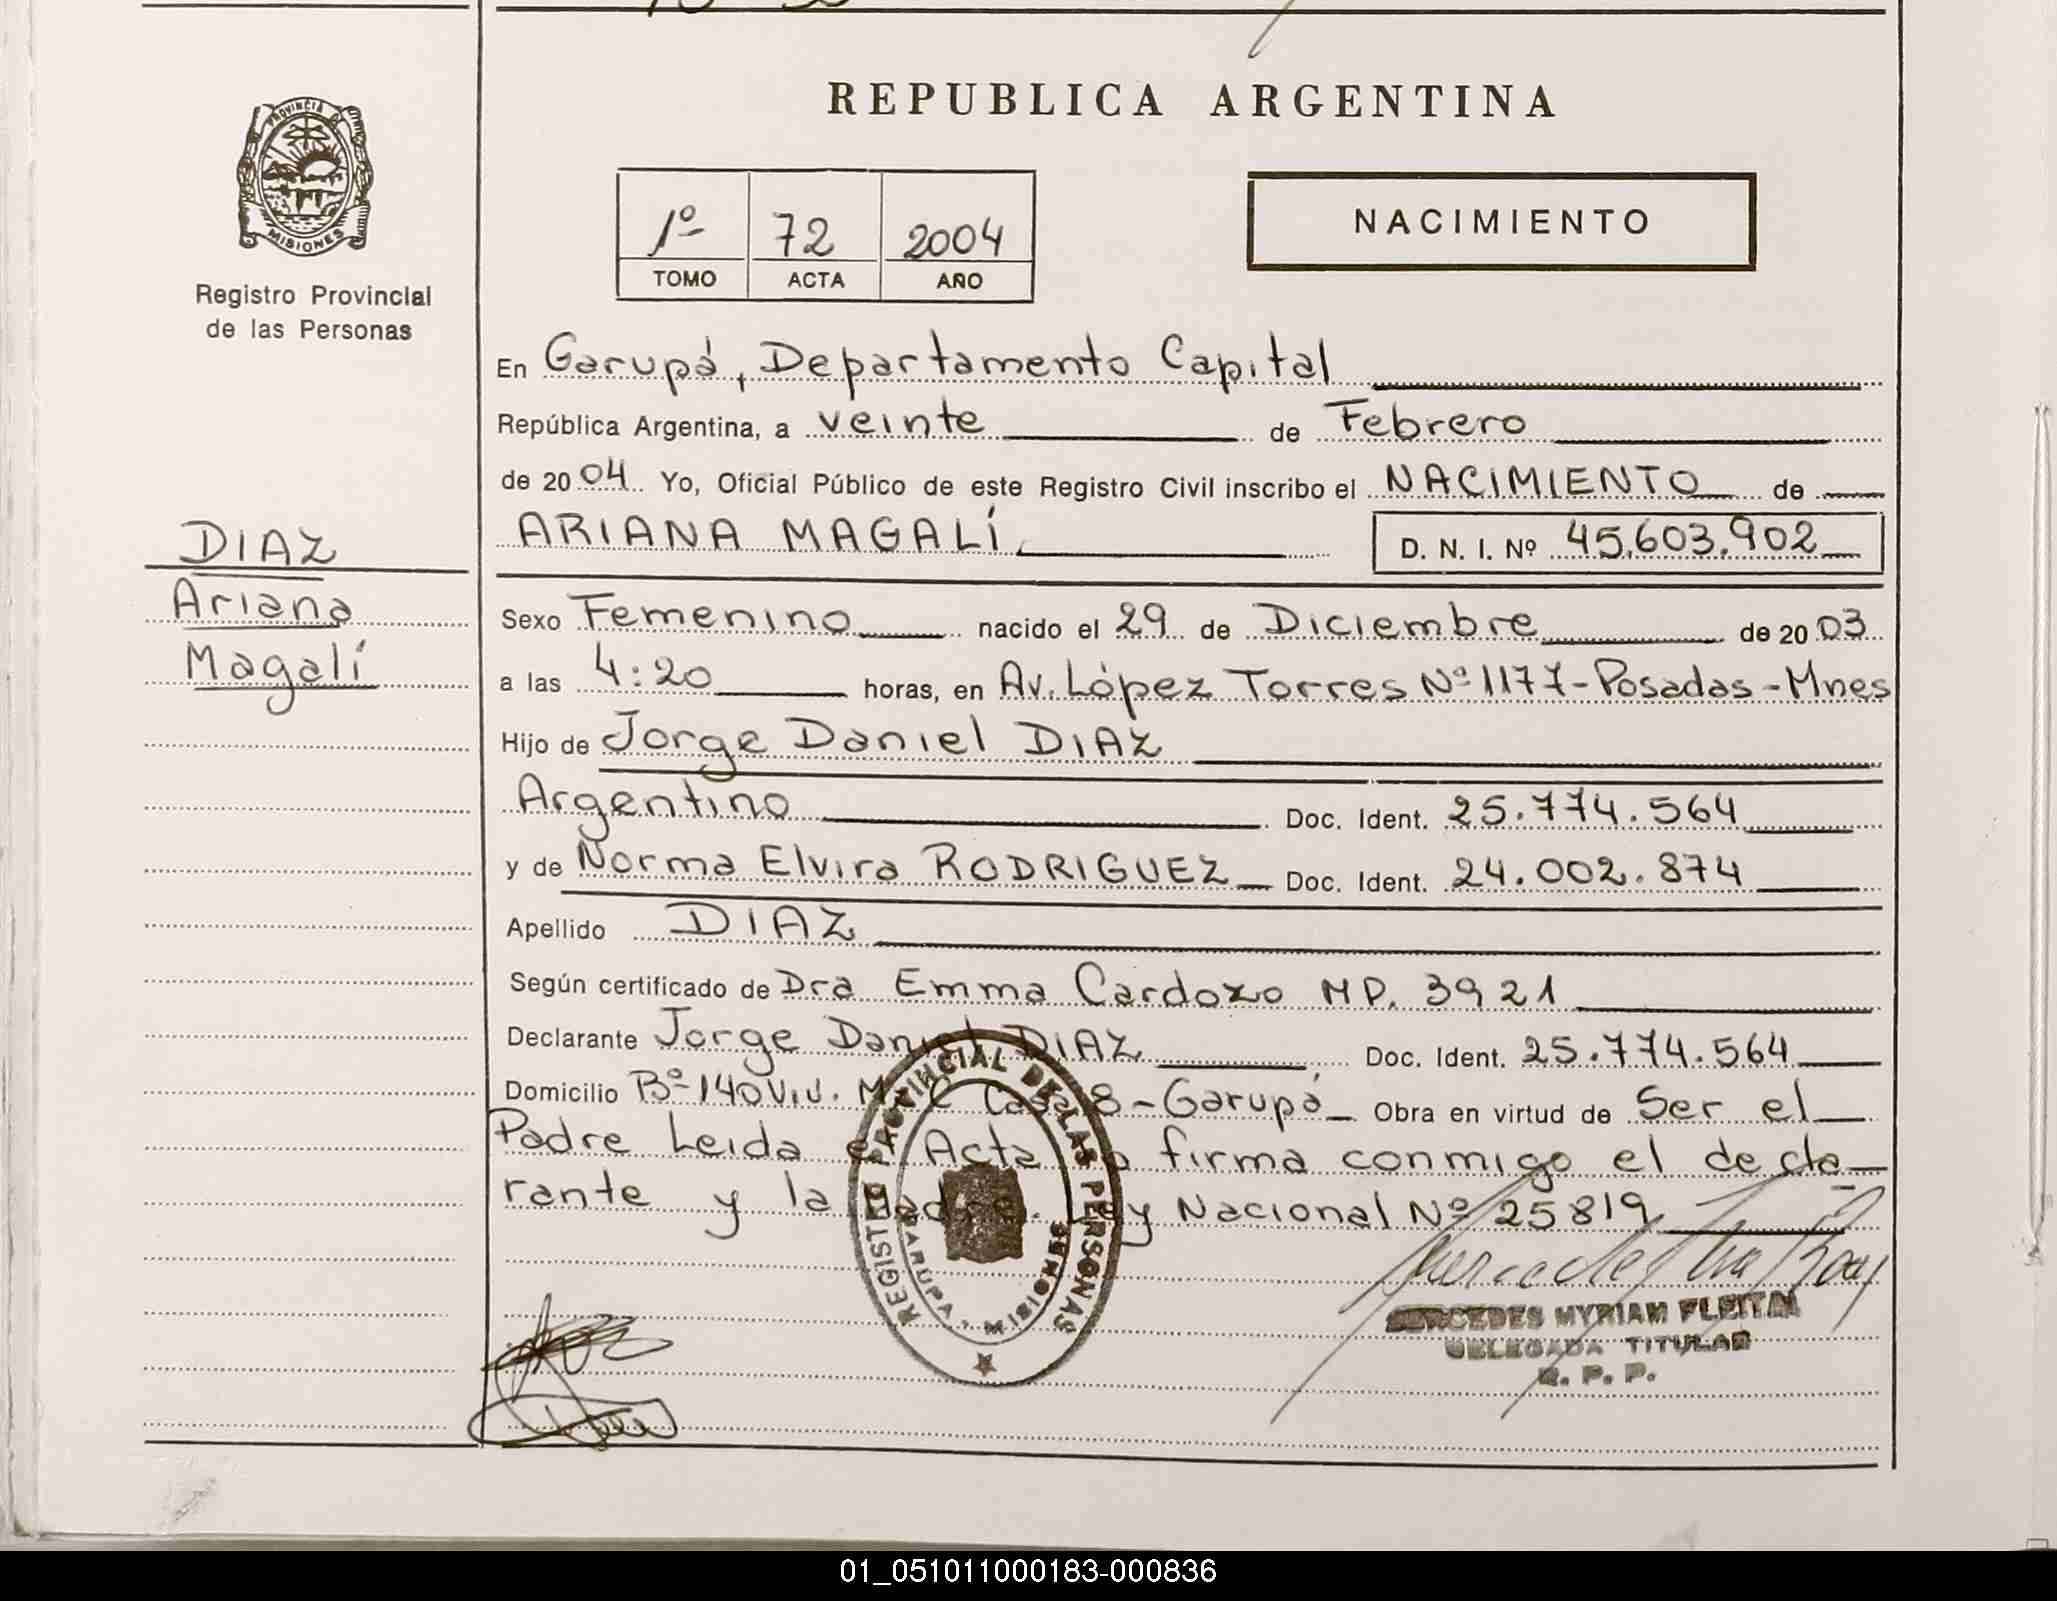 PROVINCIA DE
MISIONES
Registro Provincial
de las Personas
REPUBLICA ARGENTINA
1º 72 2004
TOMO ACTA AÑO
NACIMIENTO
En Garupá, Departamento Capital
República Argentina, a veinte de Febrero
de 2004 Yo, Oficial Público de este Registro Civil inscribo el NACIMIENTO de
ARIANA MAGALÍ D. N. I. Nº 45.603.902
DIAZ
Ariana
Magalí
Sexo Femenino nacido el 29 de Diciembre de 2003
a las 4:20 horas, en Av. López Torres Nº 1177-Posadas-Mnes
Hijo de Jorge Daniel DIAZ
Argentino Doc. Ident. 25.774.564
y de Norma Elvira RODRIGUEZ Doc. Ident. 24.002.874
Apellido DIAZ
Según certificado de Dra Emma Cardozo MP. 3921
Declarante Jorge Daniel DIAZ Doc. Ident. 25.774.564
Domicilio Bº 140 Viv. C Casa 8-Garupá Obra en virtud de Ser el
Padre Leida el Acta la firma conmigo el decla-
rante y la Madre. Ley Nacional Nº 25819
REGISTRO PROVINCIAL DE LAS PERSONAS
GARUPA - MISIONES
MERCEDES MYRIAM FLEITA
DELEGADA TITULAR
R. P. P.
01_051011000183-000836